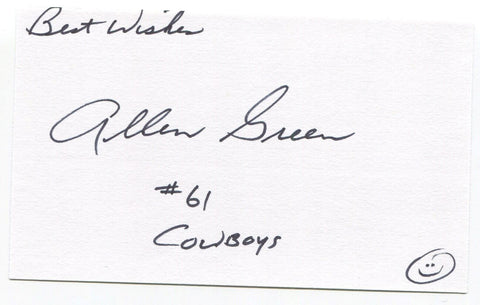 Best Wishes
Allen Green
#61
Cowboys